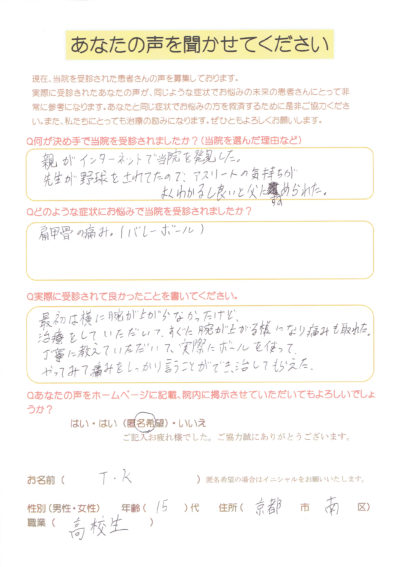 あなたの声を聞かせてください
現在、当院を受診された患者さんの声を募集しております。
実際に受診されたあなたの声が、同じような症状でお悩みの未来の患者さんにとって非
常に参考になります。あなたと同じ症状でお悩みの方を救済するために是非ご協力くださ
い。また、私たちにとっても治療の励みになります。ぜひともよろしくお願いします。
Q何が決め手で当院を受診されましたか？(当院を選んだ理由など)
親がインターネットで当院を発見した。
先生が野球をされてたので、アスリートの気持ちが
よくわかるし良いと父に められた。
すす
Qどのような症状にお悩みで当院を受診されましたか？
肩甲骨の痛み。(バレーボール)
Q実際に受診されて良かったことを書いてください。
最初は横に腕が上がらなかったけど、
治療をしていただいて、すぐに腕が上がる様になり痛みも取れた。
丁寧に教えていただいて、実際にボールを使って、
やってみて痛みをしっかり言うことができ、治してもらえた。
Qあなたの声をホームページに記載、院内に掲示させていただいてもよろしいでしょ
うか？
はい・はい(匿名希望)・いいえ
ご記入お疲れ様でした。ご協力誠にありがとうございます。
お名前 ( T・K ) 匿名希望の場合はイニシャルをお願いいたします。
性別(男性・女性) 年齢( 15 )代 住所( 京都 市 南 区)
職業( 高校生 )